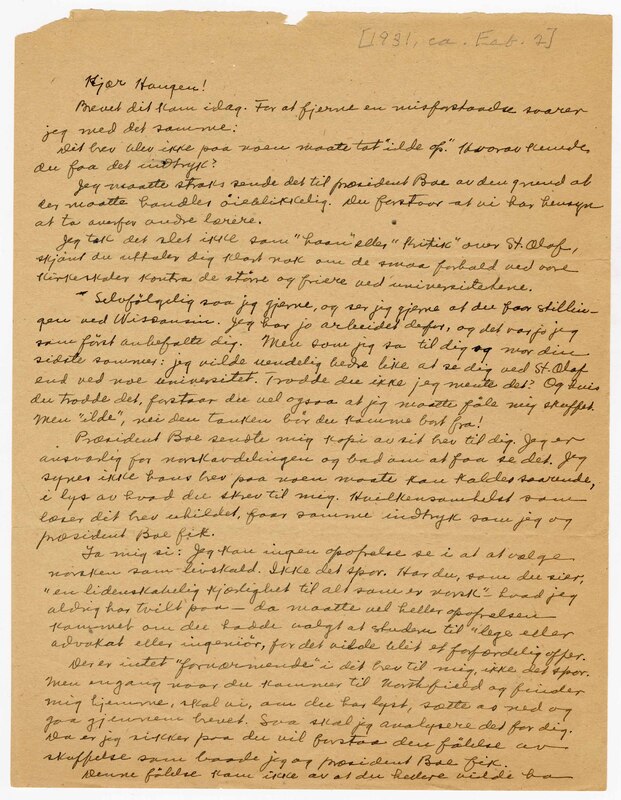 [1931, ca. Feb. 7]
Kjær Haugen!
Brevet dit kom idag. For at fjerne en misforstaadse svarer
jeg med det samme:
Dit brev blev ikke paa noen maate tat "ilde op". Hvorav kunde
du faa det indtryk?
Jeg maatte straks sende det til præsident Boe av den grund at
der maatte handles öieblikkelig. Du forstaar at vi har hensyn
at ta overfor andre lærere.
Jeg tok det slet ikke som "haan" eller "kritik" over St. Olaf,
skjönt du uttaler dig klart nok om de smaa forhold ved vore
kirkeskoler kontra de större og friere ved universitetene.
Selvfölgelig saa jeg gjerne, og ser jeg gjerne at du faar stillin-
gen ved Wisconsin. Jeg har jo arbeidet derfor, og det var jo jeg
som först anbefalte dig. Men som jeg sa til dig og mor din
sidste sommer: jeg vilde uendelig bedre like at se dig ved St. Olaf
end ved noe universitet. Trodde du ikke jeg mente det? Og hvis
du trodde det, forstaar du vel ogsaa at jeg maatte föle mig skuffet.
Men "ilde", nei den tanken bör du komme bort fra!
Præsident Boe sendte mig kopi av sit brev til dig. Jeg er
ansvarlig for norskavdelingen og bad om at faa se det. Jeg
synes ikke hans brev paa noen maate kan kaldes saarende,
i lys av hvad du skrev til mig. Hvilkensomhelst som
læser dit brev uhildet, faar samme indtryk som jeg og
præsident Boe fik.
Ja mig si: Jeg kan ingen opofrelse se i at at vælge
norsken som livskald. Ikke det spor. Har du, som du sier,
"en lidenskabelig kjærlighet til alt som er norsk" - hvad jeg
aldrig har tvilt paa - da maatte vel heller opofrelsen
kommet om du hadde valgt at studere til "læge eller
advokat eller ingeniör, for det vilde blit et forfærdelig offer.
Der er intet "fornærmende" i dit brev til mig, ikke det spor.
Men engang naar du kommer til Northfield og finder
mig hjemme, skal vi, om du har lyst, sætte os ned og
gaa gjennem brevet. Saa skal jeg analysere det for dig.
Da er jeg sikker paa du vil forstaa den fölelse av
skuffelse som baade jeg og præsident Boe fik.
Denne fölelse kom ikke av at du hedere vilde ha